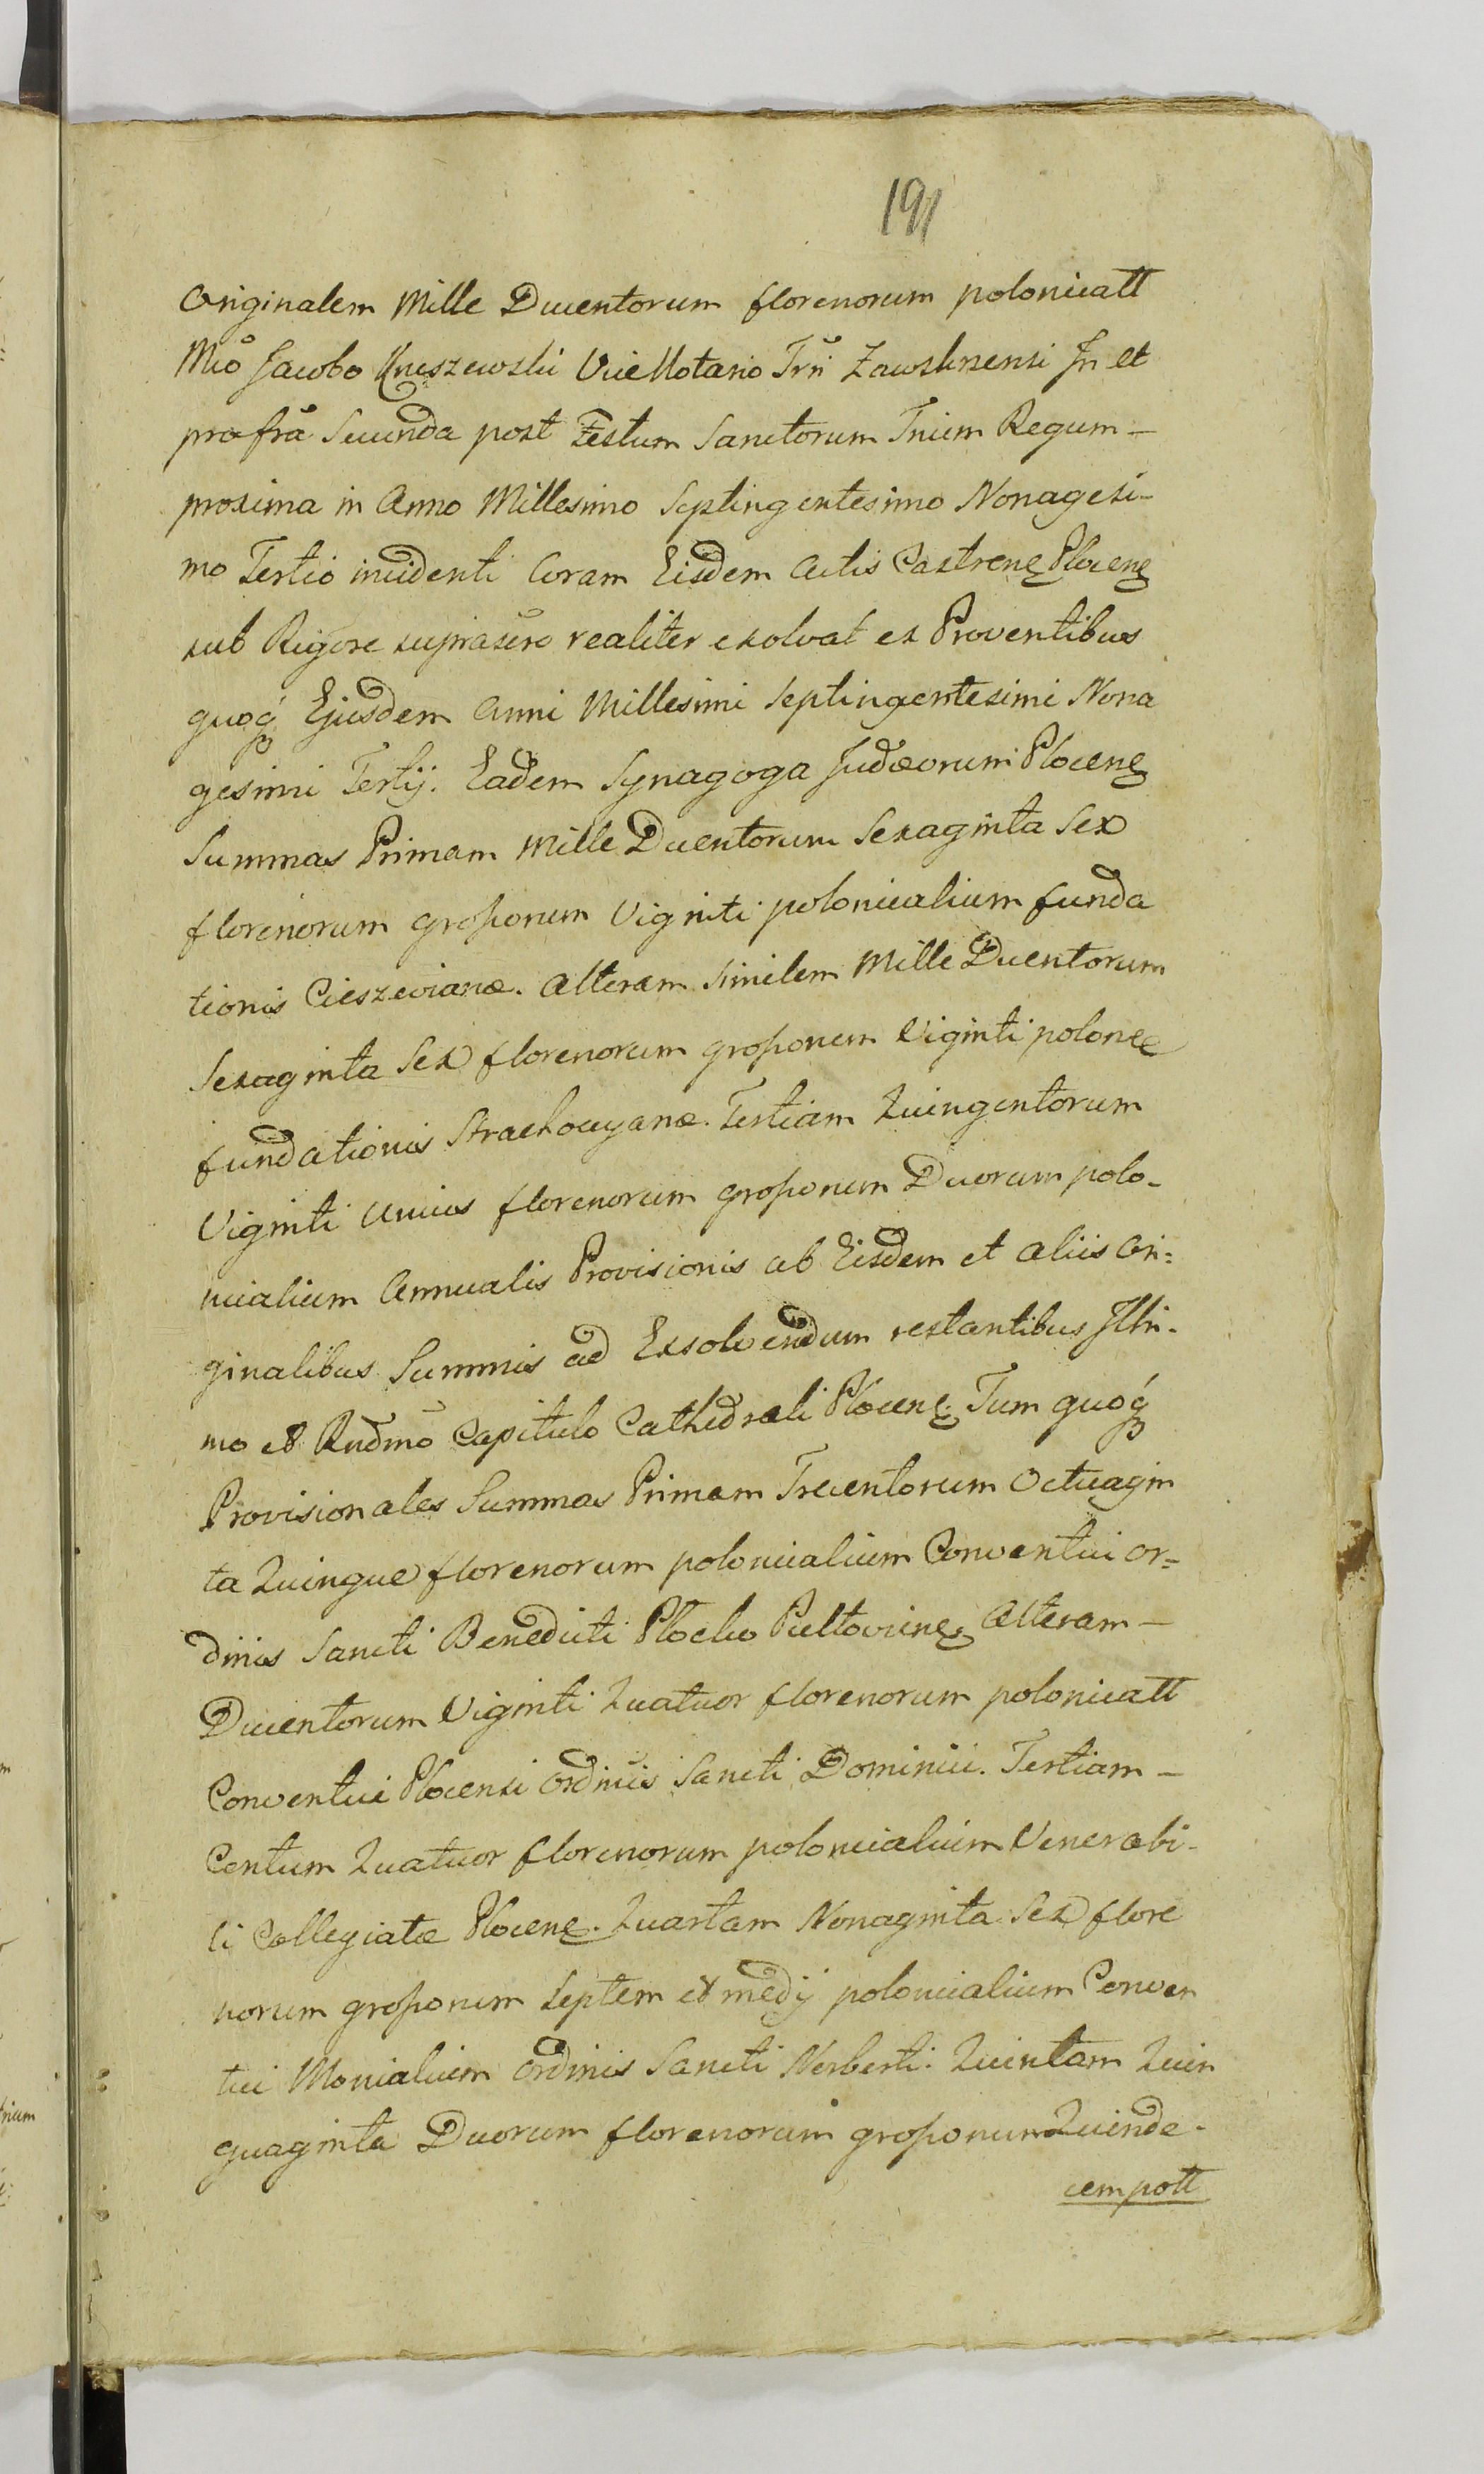 191
Originalem Mille Ducentorum florenorum polonicatt
Mco Jacobo Kruszewski ViceNotario Trri Zawskrnensi In et
pro fra Secunda post Festum Sanctorum Trium Regum —
proxima in Anno Millesimo Septingentesimo Nonagesi-
mo Tertio incidenti Coram Eisdem Actis Castrenę Plocenę
sub Rigore suprascro realiter exolvat ex Proventibus
quoq́ Ejusdem Anni Millesimi Septingentesimi Nona
gesimi Tertij. Eadem Synagoga Judæorum Plocenę
Summas Primam Mille Ducentorum Sexaginta Sex
florenorum grossorum Viginti polonicalium funda
tionis Cieszewianæ. Alteram similem Mille Ducentorum
Sexaginta Sex florenorum grossorum Viginti polonę
fundationis Strachocyanæ. Tertiam Quingentorum
Viginti unius florenorum grossorum Duorum polo-
nicalium Annualis Provisionis ab Eisdem et aliis Ori=
ginalibus Summis ad Exsolvendum restantibus Illri-
mo et Rndmo Capitulo Cathedrali Plocenę. Tum quoq́
Provisionales Summas Primam Trecentorum Octuagin
ta Quinque florenorum polonicalium Conventui Or=
dinis Sancti Benedicti Plocko Pultovienę, Alteram —
Ducentorum Viginti Quatuor florenorum polonicatt
Conventui Plocensi Ordinis Sancti Dominici. Tertiam —
Centum Quatuor florenorum polonicalium Venerabi-
li Collegiatæ Plocenę. Quartam Nonaginta Sex flore
norum grossorum septem et medij polonicalium Conven
tui Monialium Ordinis Sancti Norberti. Quintam Quin
quaginta Duorum florenorum grossorum Quinde-
cem pott